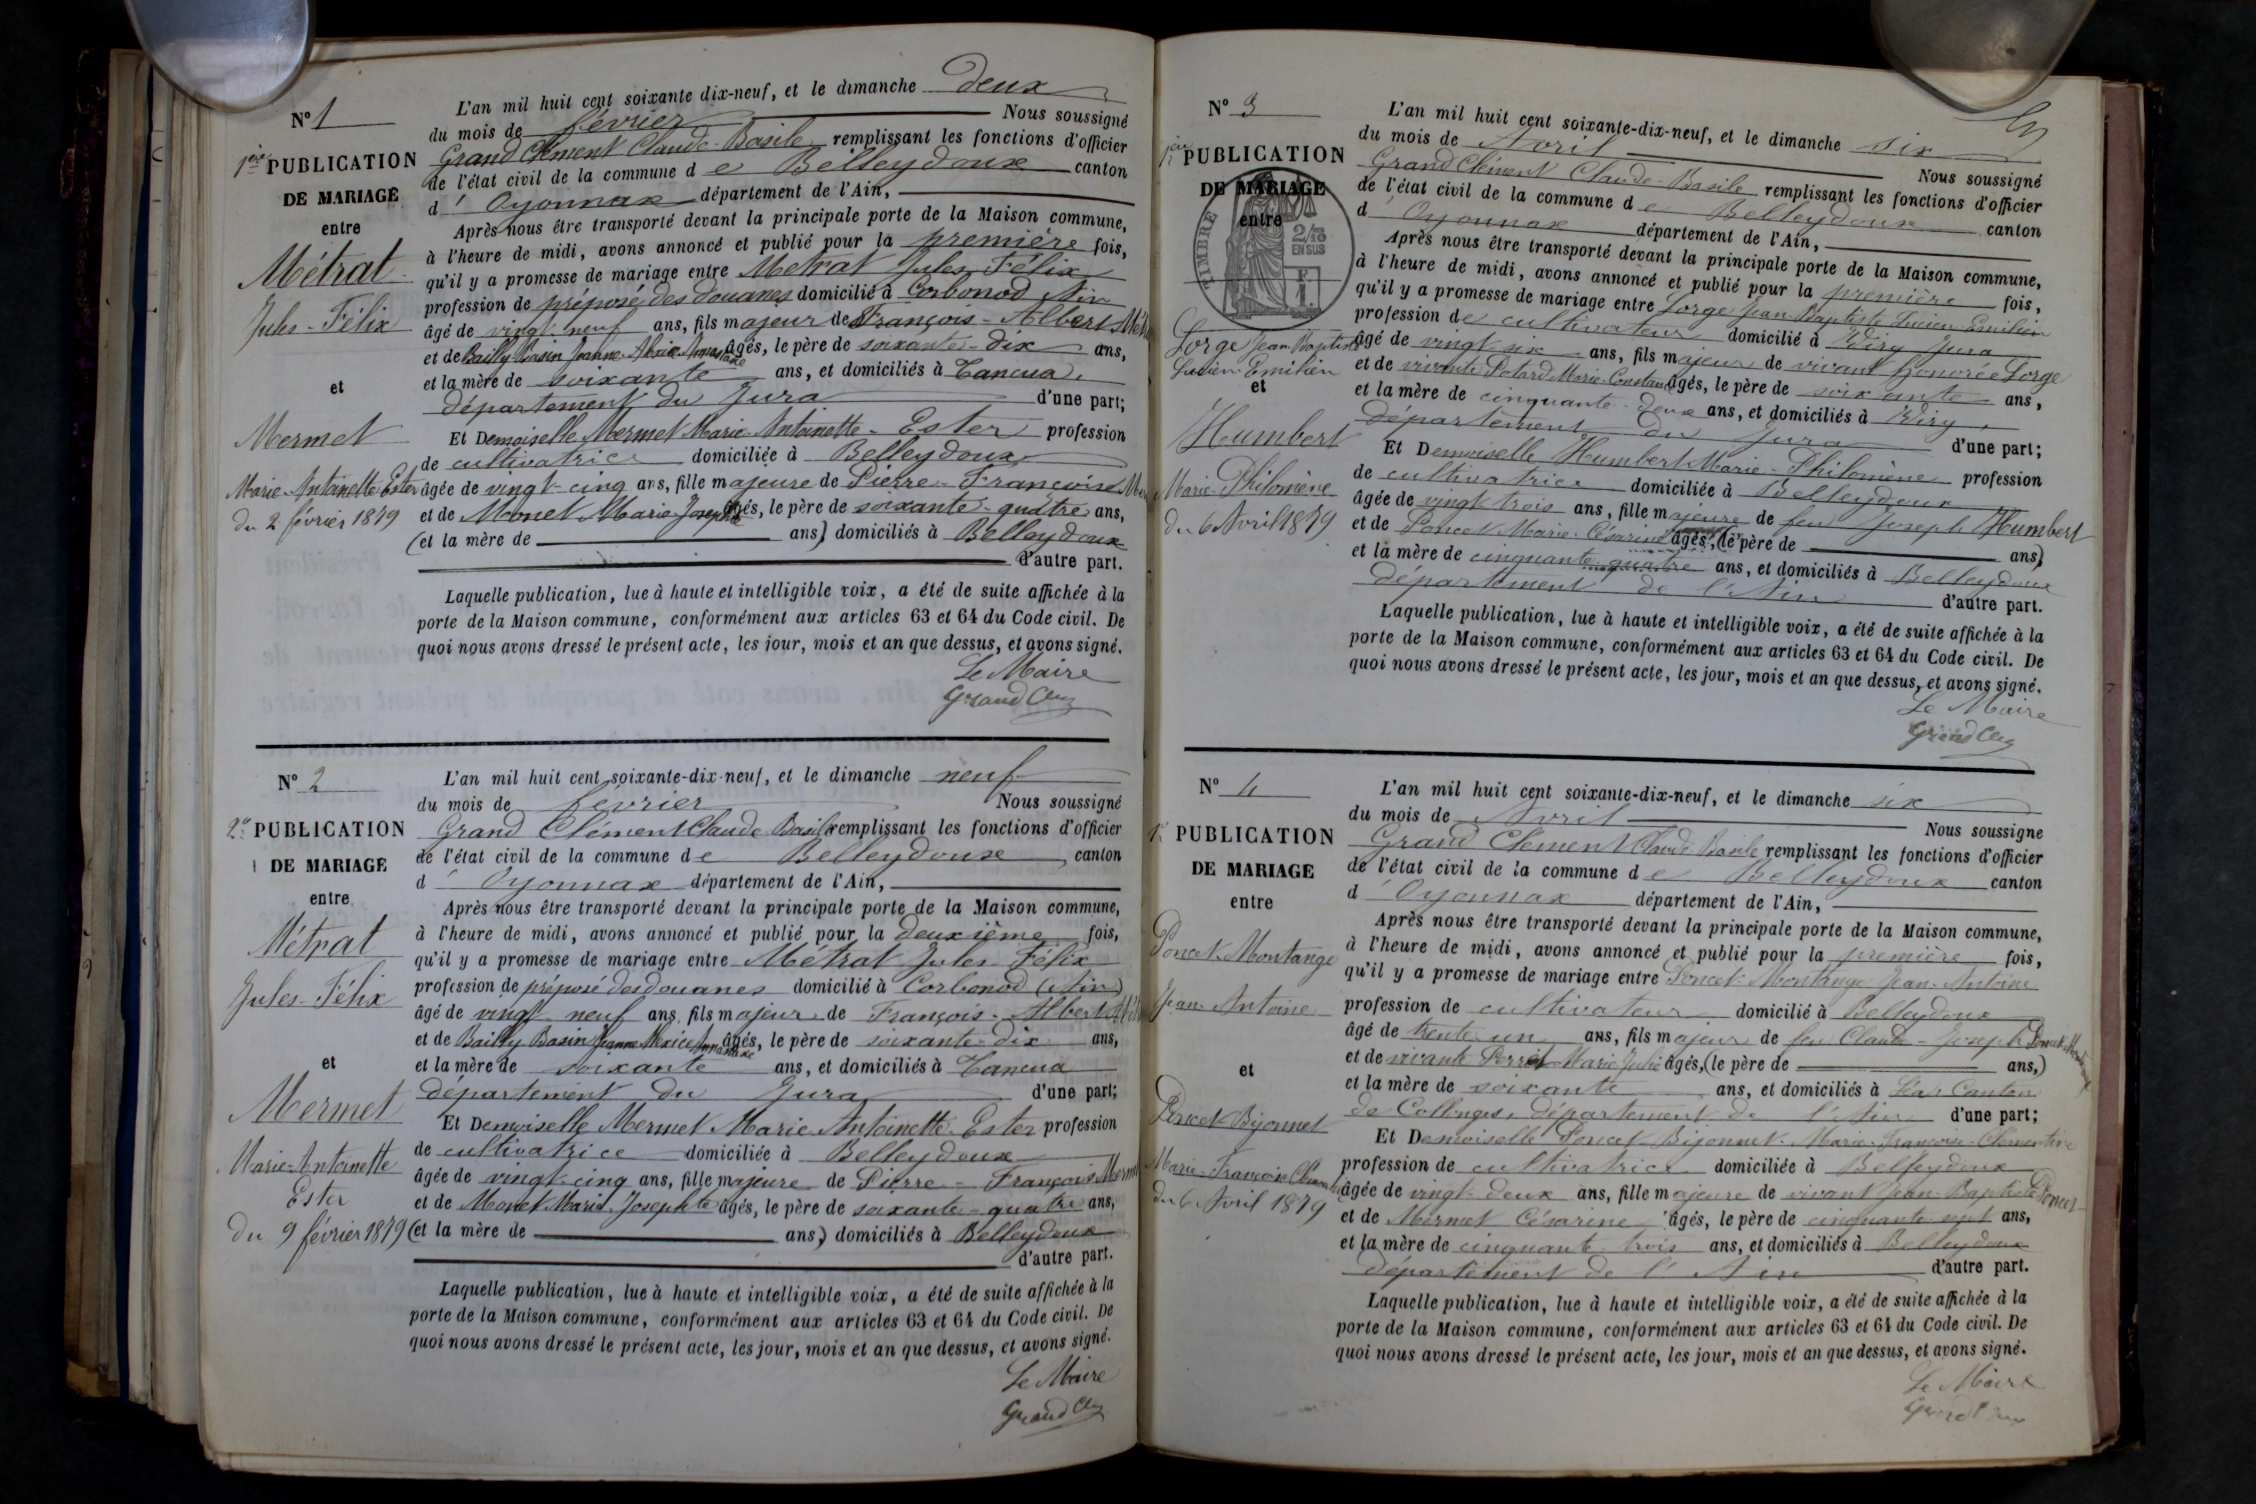 N° 1
1ère PUBLICATION
DE MARIAGE
entre
Métrat
Jules-Félix
et
Mermet
Marie-Antoinette Ester
du 2 février 1879
L'an mil huit cent soixante dix-neuf, et le dimanche deux
du mois de février Nous soussigné
Grand Clément Claude-Basile remplissant les fonctions d'officier
de l'état civil de la commune de Belleydoux canton
d'Oyonnax département de l'Ain,
Après nous être transporté devant la principale porte de la Maison commune,
à l'heure de midi, avons annoncé et publié pour la première fois,
qu'il y a promesse de mariage entre Métrat Jules Félix
profession de préposé des douanes domicilié à Corbonod Ain
âgé de vingt neuf ans, fils majeur de François-Albert
et de Bailly Basin Jeanne âgés, le père de soixante-dix ans,
et la mère de soixante ans, et domiciliés à Tancua,
département du Jura d'une part;
Et Demoiselle Mermet Marie-Antoinette-Ester profession
de cultivatrice domiciliée à Belleydoux
âgée de vingt-cinq ans, fille majeure de Pierre-Françoise
et de Monet Marie Josephte âgés, le père de soixante-quatre ans,
(et la mère de ans) domiciliés à Belleydoux
d'autre part.
Laquelle publication, lue à haute et intelligible voix, a été de suite affichée à la
porte de la Maison commune, conformément aux articles 63 et 64 du Code civil. De
quoi nous avons dressé le présent acte, les jour, mois et an que dessus, et avons signé.
Le Maire
Grand Clém
N° 2
2e PUBLICATION
DE MARIAGE
entre
Métrat
Jules-Félix
et
Mermet
Marie-Antoinette
Ester
du 9 février 1879
L'an mil huit cent soixante-dix-neuf, et le dimanche neuf
du mois de février Nous soussigné
Grand Clément Claude-Basile remplissant les fonctions d'officier
de l'état civil de la commune de Belleydoux canton
d'Oyonnax département de l'Ain,
Après nous être transporté devant la principale porte de la Maison commune,
à l'heure de midi, avons annoncé et publié pour la deuxième fois,
qu'il y a promesse de mariage entre Métrat Jules Félix
profession de préposé des douanes domicilié à Corbonod (Ain)
âgé de vingt neuf ans, fils majeur de François-Albert
et de Bailly Basin Jeanne âgés, le père de soixante-dix ans,
et la mère de soixante ans, et domiciliés à Tancua
département du Jura d'une part;
Et Demoiselle Mermet Marie Antoinette Ester profession
de cultivatrice domiciliée à Belleydoux
âgée de vingt-cinq ans, fille majeure de Pierre-François Mermet
et de Monet Marie Josephte âgés, le père de soixante-quatre ans,
(et la mère de ans,) domiciliés à Belleydoux
d'autre part.
Laquelle publication, lue à haute et intelligible voix, a été de suite affichée à la
porte de la Maison commune, conformément aux articles 63 et 64 du Code civil. De
quoi nous avons dressé le présent acte, les jour, mois et an que dessus, et avons signé.
Le Maire
Grand Clém
N° 3
1ère PUBLICATION
DE MARIAGE
entre
TIMBRE
2/10
EN SUS
Lorge Jean Baptiste
Lucien-Emilien
et
Humbert
Marie-Philomène
du 6 Avril 1879
L'an mil huit cent soixante-dix-neuf, et le dimanche six
du mois de Avril Nous soussigné
Grand Clément Claude-Basile remplissant les fonctions d'officier
de l'état civil de la commune de Belleydoux canton
d'Oyonnax département de l'Ain,
Après nous être transporté devant la principale porte de la Maison commune,
à l'heure de midi, avons annoncé et publié pour la première fois,
qu'il y a promesse de mariage entre Lorge Jean Baptiste Lucien Emilien
profession de cultivateur domicilié à Viry Jura
âgé de vingt six ans, fils majeur de vivant Honorée Lorge
et de vivante Potard Marie âgés, le père de soixante ans,
et la mère de cinquante-deux ans, et domiciliés à Viry,
département du Jura d'une part;
Et Demoiselle Humbert Marie-Philomène profession
de cultivatrice domiciliée à Belleydoux
âgée de vingt trois ans, fille majeure de feu Joseph Humbert
et de Poncet Marie Césarine âgés, (le père de ans)
et la mère de cinquante quatre ans, et domiciliés à Belleydoux
département de l'Ain d'autre part.
Laquelle publication, lue à haute et intelligible voix, a été de suite affichée à la
porte de la Maison commune, conformément aux articles 63 et 64 du Code civil. De
quoi nous avons dressé le présent acte, les jour, mois et an que dessus, et avons signé.
Le Maire
Grand Clém
N° 4
1e PUBLICATION
DE MARIAGE
entre
Poncet-Montange
Jean-Antoine
et
Poncet Bijonnet
Marie-Françoise
du 6 Avril 1879
L'an mil huit cent soixante-dix-neuf, et le dimanche six
du mois de Avril Nous soussigné
Grand Clément Claude Basile remplissant les fonctions d'officier
de l'état civil de la commune de Belleydoux canton
d'Oyonnax département de l'Ain,
Après nous être transporté devant la principale porte de la Maison commune,
à l'heure de midi, avons annoncé et publié pour la première fois,
qu'il y a promesse de mariage entre Poncet-Montange Jean-Antoine
profession de cultivateur domicilié à Belleydoux
âgé de trente-un ans, fils majeur de feu Claude-Joseph
et de vivante Perret Marie Julie âgés, (le père de ans,)
et la mère de soixante ans, et domiciliés à Léaz Canton
de Collonges, département de l'Ain d'une part;
Et Demoiselle Poncet Bijonnet Marie-Françoise-Clementine
profession de cultivatrice domiciliée à Belleydoux
âgée de vingt-deux ans, fille majeure de vivant Jean Baptiste Poncet
et de Mermet Césarine âgés, le père de cinquante sept ans,
et la mère de cinquante trois ans, et domiciliés à Belleydoux
département de l'Ain d'autre part.
Laquelle publication, lue à haute et intelligible voix, a été de suite affichée à la
porte de la Maison commune, conformément aux articles 63 et 64 du Code civil. De
quoi nous avons dressé le présent acte, les jour, mois et an que dessus, et avons signé.
Le Maire